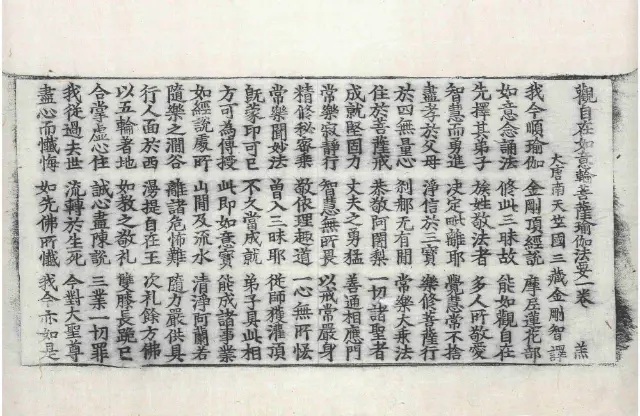 觀自在如意輪菩薩瑜伽法要一卷 羔
大唐南天竺國三藏金剛智 譯
我今順瑜伽 金剛頂經說 摩尼蓮花部
如意念誦法 修此三昧故 能如觀自在
先擇其弟子 族姓敬法者 多人所敬愛
智慧而勇進 決定毗離耶 覺慧常不捨
盡孝於父母 淨信於三寶 樂修菩薩行
於四無量心 剎那无有間 常樂大乘法
住於菩薩戒 恭敬阿闍梨 一切諸聖者
成就堅固力 丈夫之勇猛 善通相應門
常樂寂靜行 智慧無所畏 以戒常嚴身
精修秘密乘 敬依理趣道 一心無所怯
常樂聞妙法 曾入三昧耶 從師獲灌頂
旣蒙印可已 不久當成就 弟子具此相
方可為傳授 此即如意寶 能成諸事業
如經說處所 山間及流水 清淨阿蘭若
隨樂之澗谷 離諸危怖難 隨力嚴供具
行人面於西 自在王 次礼餘方佛
以五輪著地 如教之敬礼 雙膝長跪已
合掌虛心住 誠心盡陳說 三業一切罪
我從過去世 流轉於生死 今對大聖尊
盡心而懺悔 如先佛所懺 我今亦如是